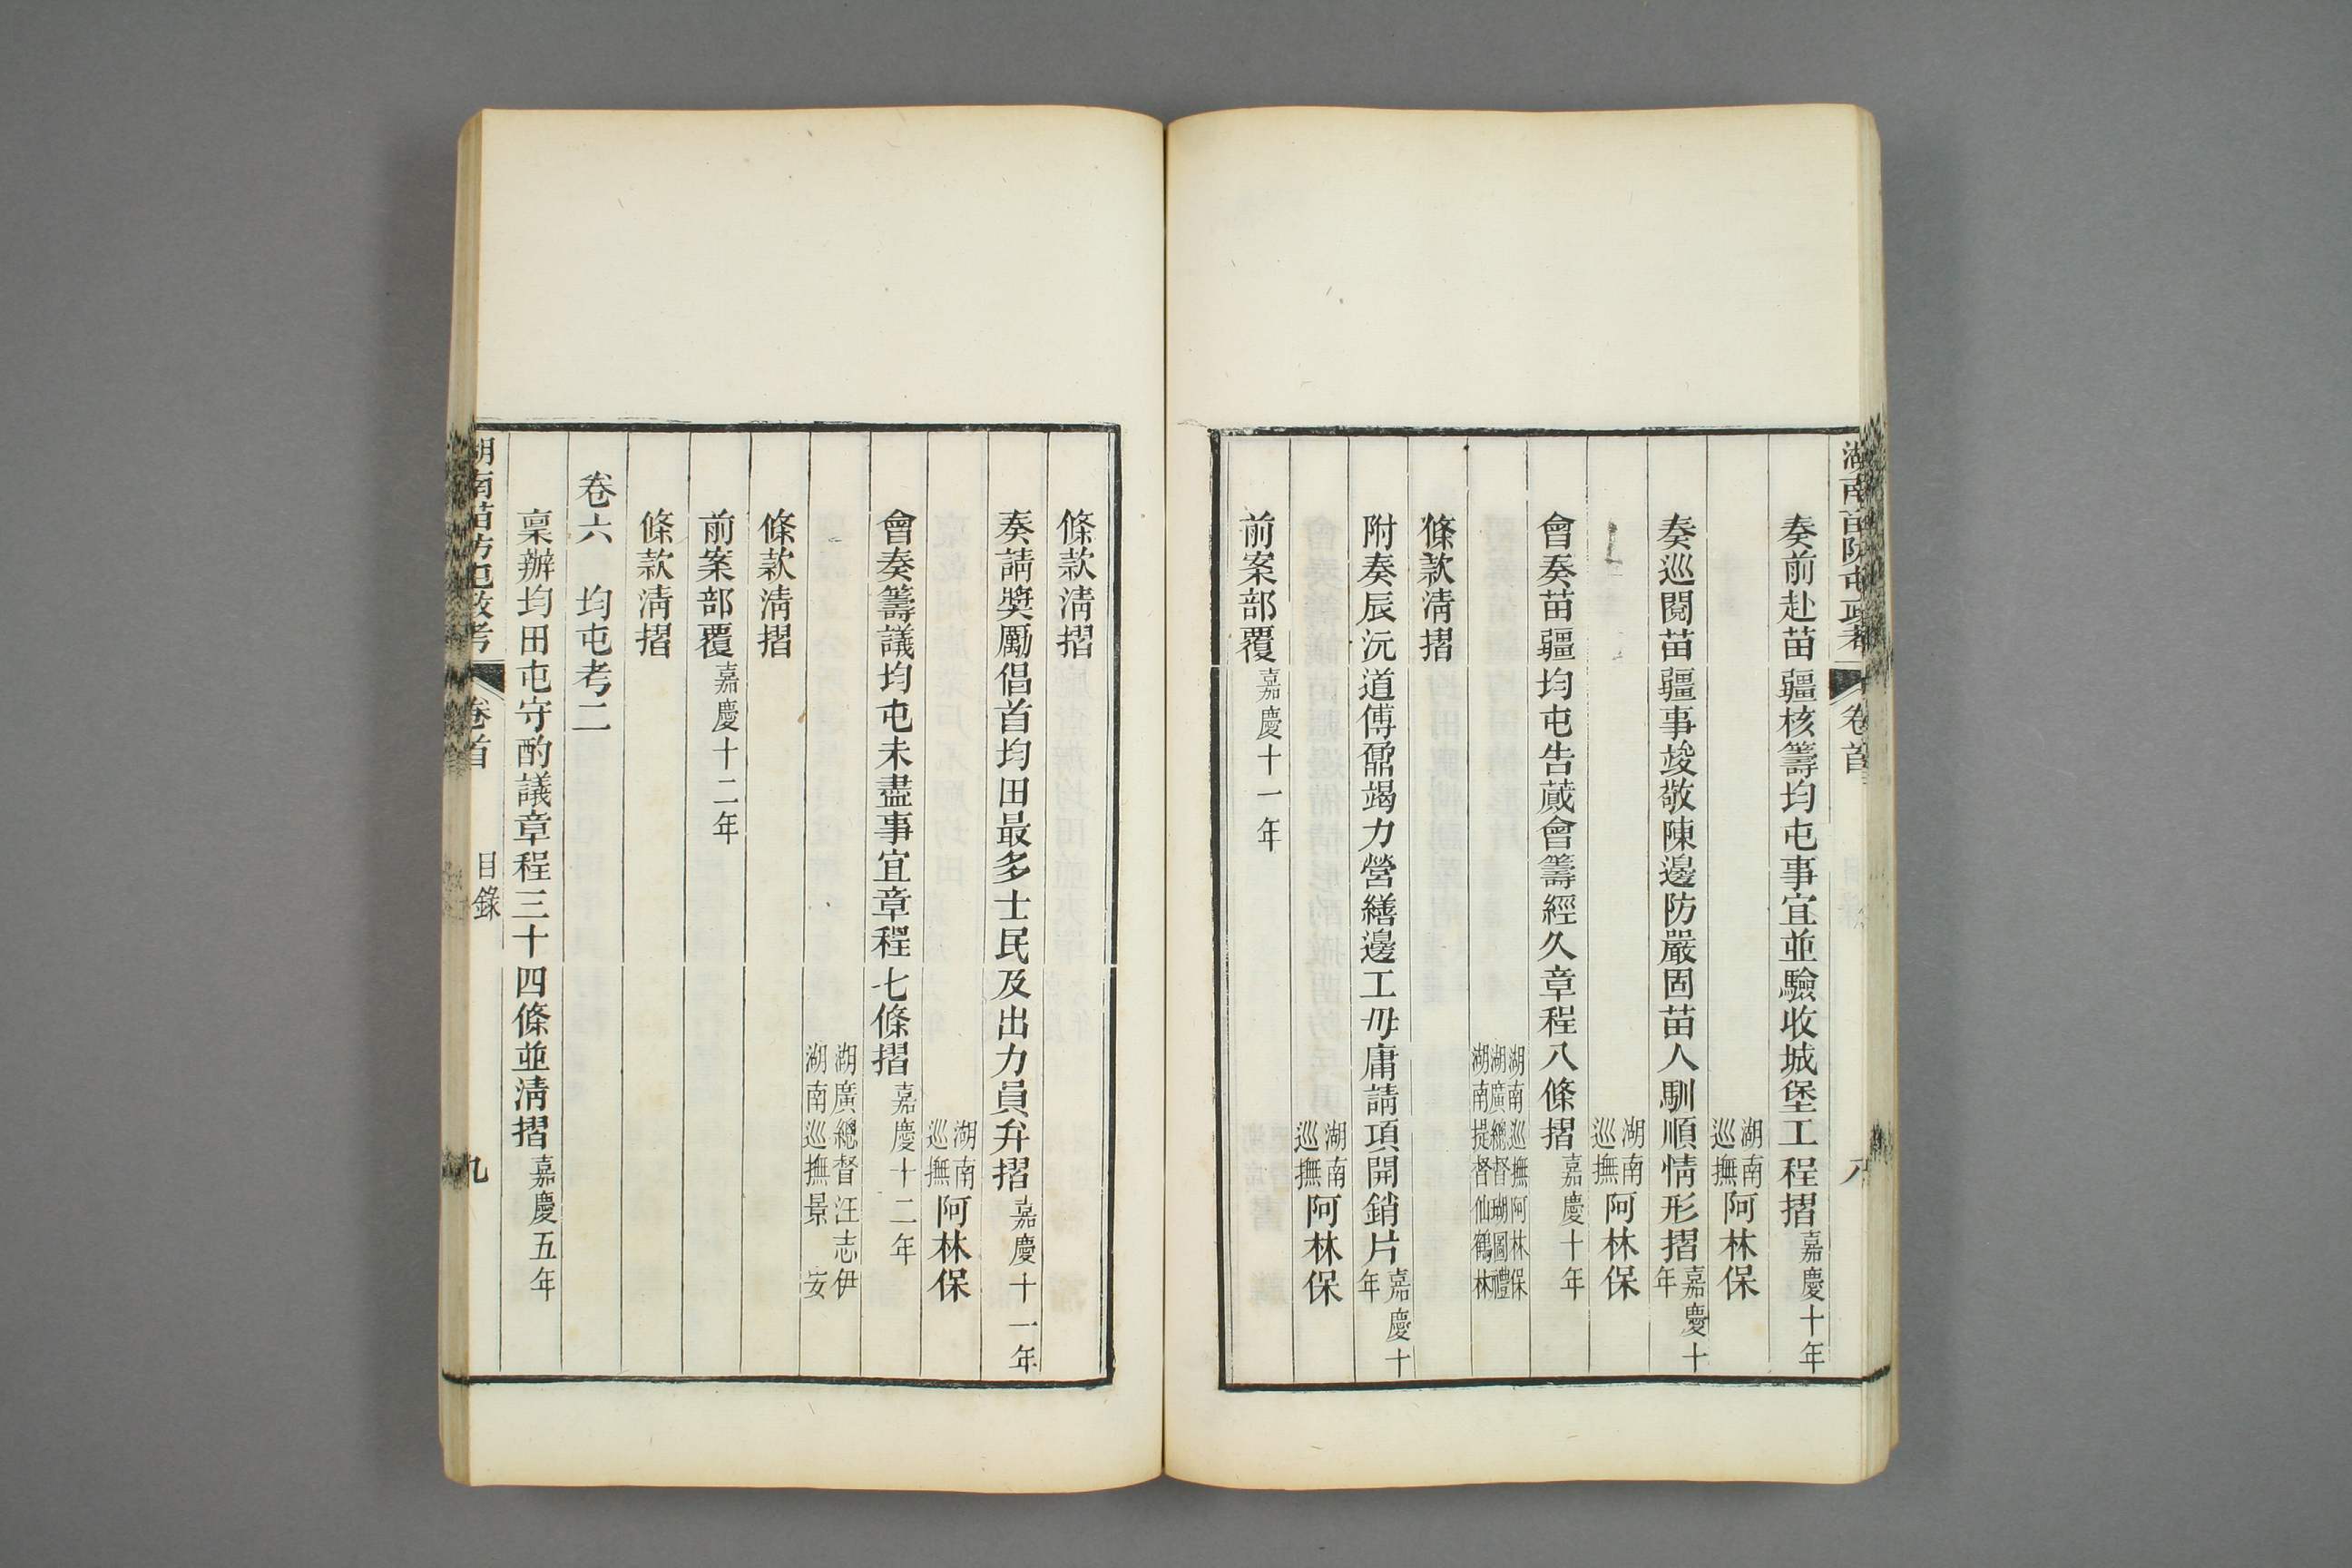 湖南苗防屯政考 卷首 八
奏前赴苗疆核籌均屯事宜並驗收城堡工程摺嘉慶十年
湖南巡撫阿林保
奏巡閱苗疆事竣敬陳邊防嚴固苗人馴順情形摺嘉慶十年
湖南巡撫阿林保
會奏苗疆均屯告蕆會籌經久章程八條摺嘉慶十年
湖南巡撫阿林保
湖廣總督瑚圖禮
湖南提督仙鶴林
條款淸摺
附奏辰沅道傅鼐竭力營繕邊工毋庸請項開銷片嘉慶十年
湖南巡撫阿林保
前案部覆嘉慶十一年
條款淸摺
奏請奬勵倡首均田最多士民及出力員弁摺嘉慶十一年
湖南巡撫阿林保
會奏籌議均屯未盡事宜章程七條摺嘉慶十二年
湖廣總督汪志伊
湖南巡撫景安
條款淸摺
前案部覆嘉慶十二年
條款淸摺
卷六 均屯考二
稟辦均田屯守酌議章程三十四條並淸摺嘉慶五年
湖南苗防屯政考 卷首 目錄 九